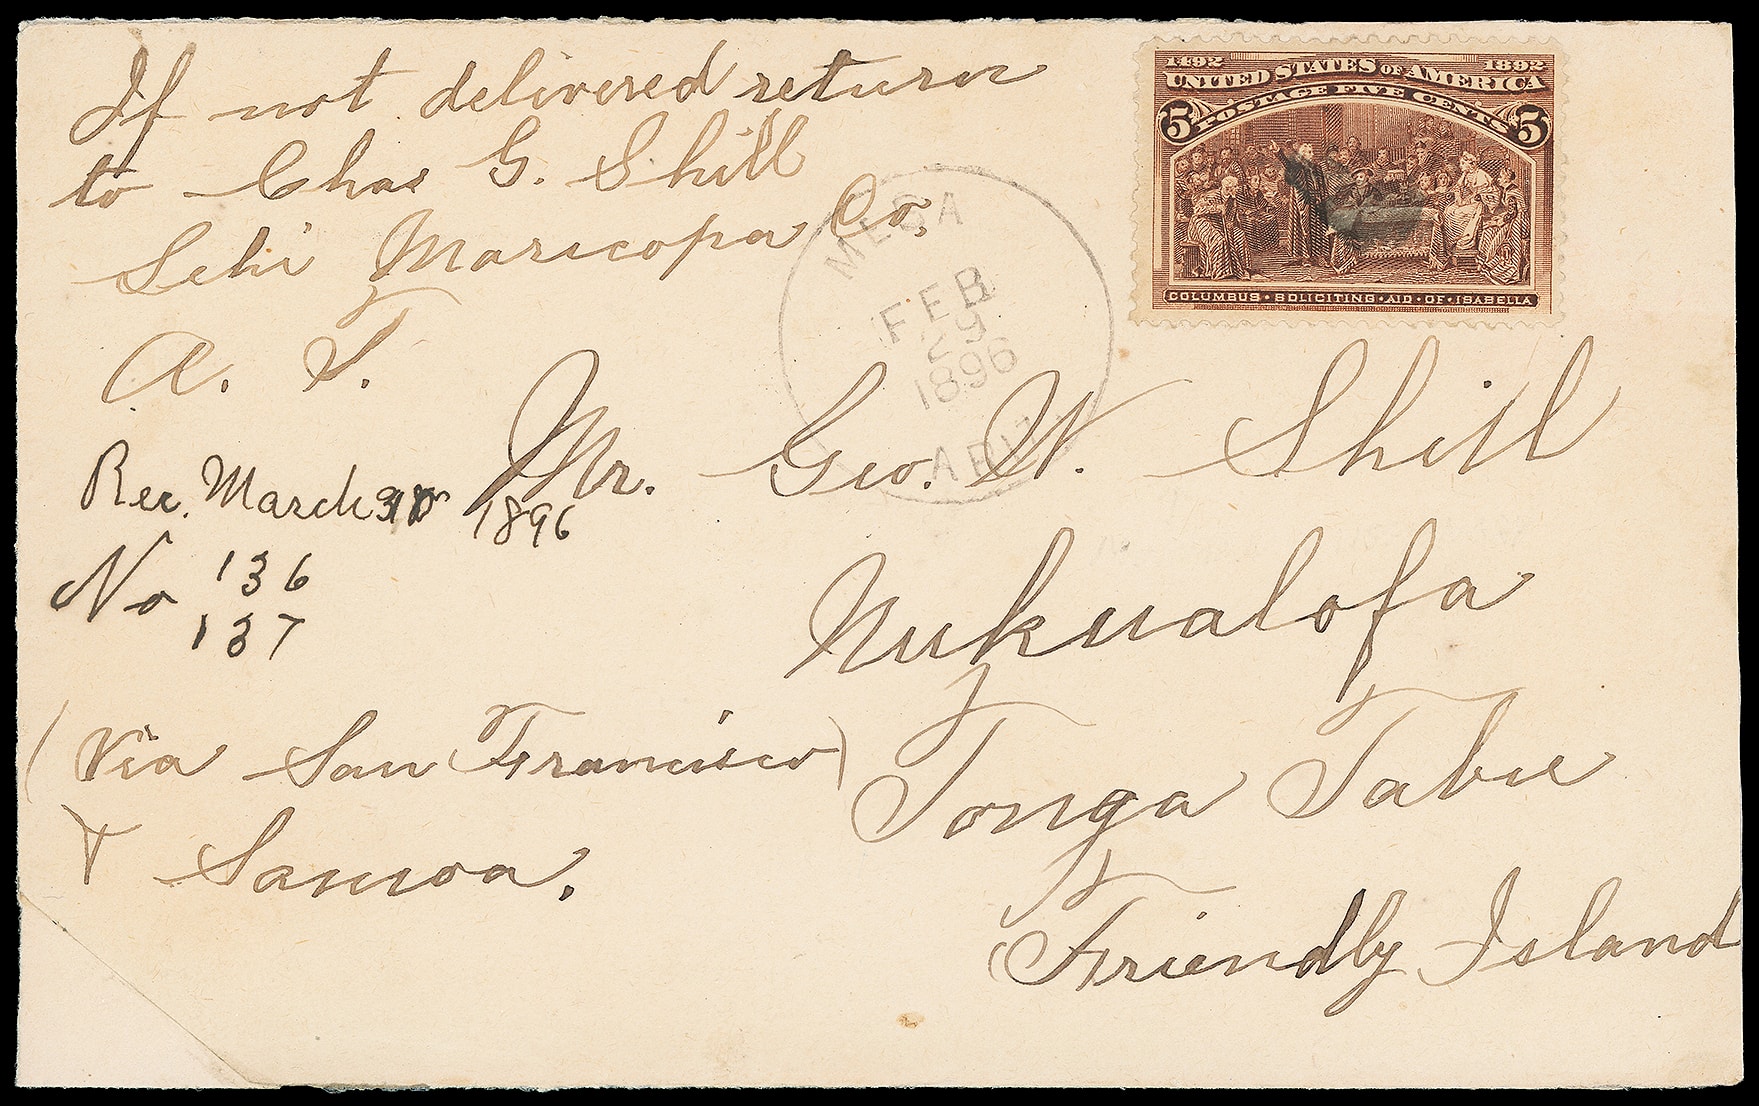 If not delivered return
to Chas G. Shill
Lehi Maricopa Co.
A. T.
1492 1892
UNITED STATES OF AMERICA
5 POSTAGE FIVE CENTS 5
COLUMBUS · SOLICITING · AID · OF · ISABELLA
MESA
FEB
29
1896
ARIZ
Mr. Geo. W. Shill
Nukualofa
Tonga Tabu
Friendly Island
Rec. March 1896
No 136
137
(Via San Francisco)
& Samoa.